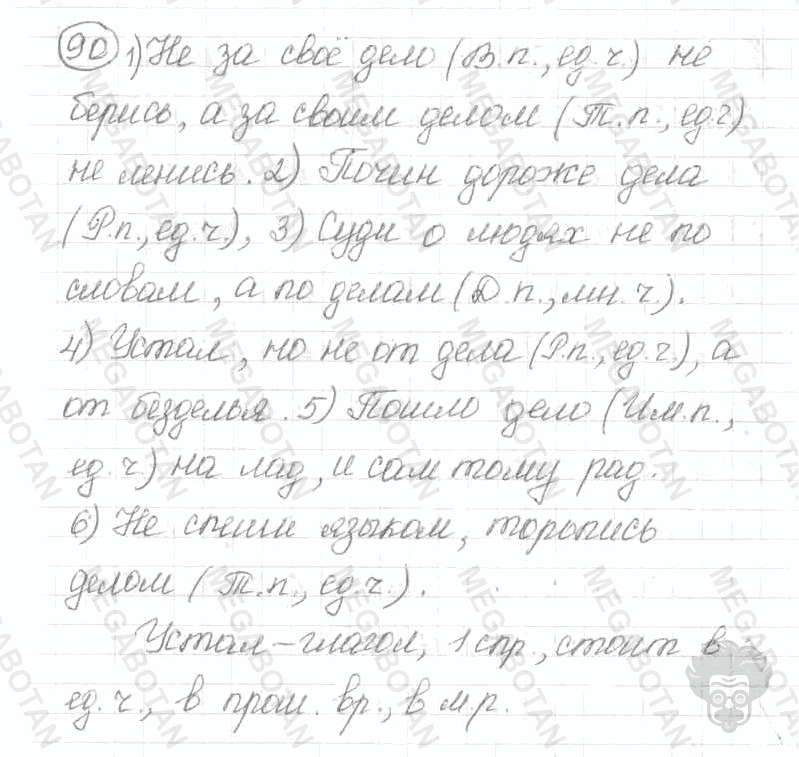 90 1) Не за своё дело (В.п., ед.ч.) не
берись, а за своим делом (Т.п., ед.ч)
не ленись. 2) Почин дороже дела
(Р.п., ед.ч.), 3) Суди о людях не по
словам, а по делам (Д.п., мн.ч.).
4) Устал, но не от дела (Р.п., ед.ч.), а
от безделья. 5) Пошло дело (Им.п.,
ед.ч.) на лад, и сам тому рад.
6) Не спеши языком, торопись
делом (Т.п., ед.ч.).
Устал – глагол, 1 спр., стоит в
ед.ч., в прош. вр., в м.р.
MEGABOTAN